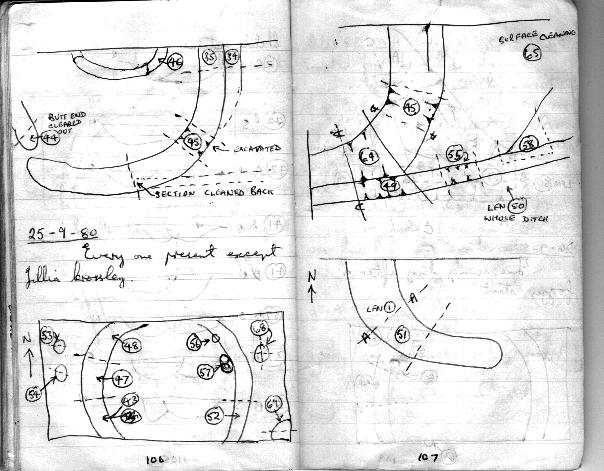 46
35
34
BUTT END
CLEARED
OUT
44
45
EXCAVATED
SECTION CLEANED BACK
25-9-80
Every one present except
N
53
54
48
47
43
56
57
52
68
69
106
SURFACE CLEANING
65
45
64
49
552
58
LFN 50
WHOLE DITCH
N
LFN 1
A
A
51
107